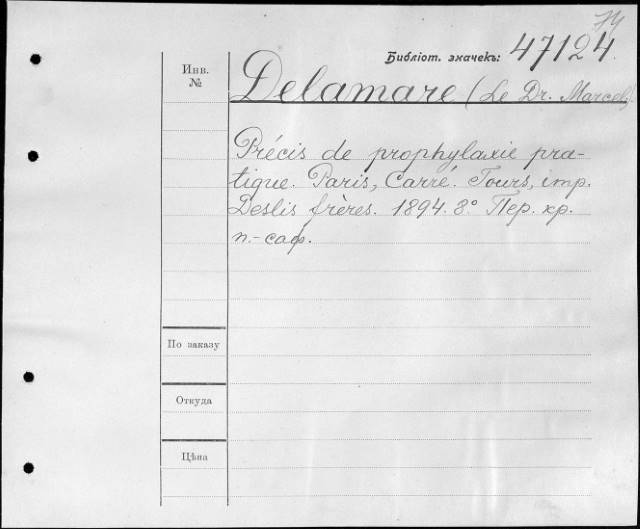 74
Библіот. значекъ: 47124.
Инв.
№
Delamare (Le Dr. Marcel)
Précis de prophylaxie pra-
tique. Paris, Carré. Tours, imp.
Deslis frères. 1894. 8° Пер. кр.
п.-саф.
По заказу
Откуда
Цѣна